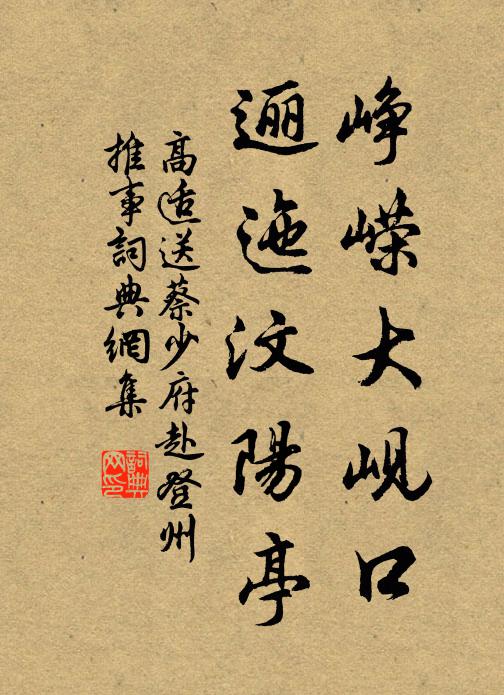 峥嵘大岘口
逦迤汶陽亭
高适送蔡少府赴登州
推事詞典網集
詞典网印